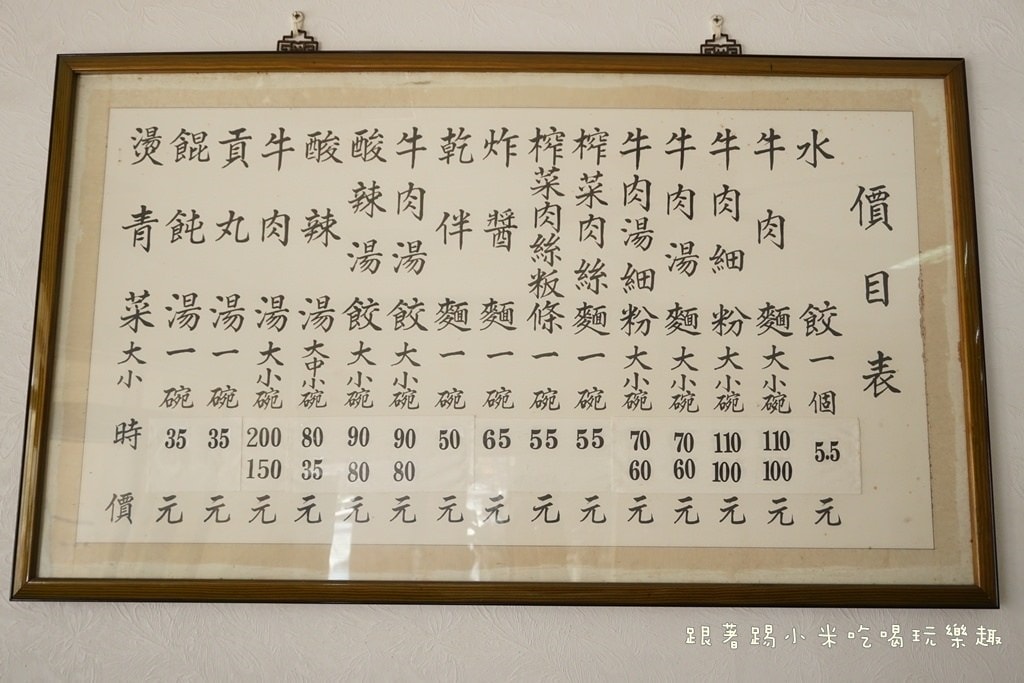 價目表
水餃一個 5.5 元
牛肉麵大小碗 110 100 元
牛肉細粉大小碗 110 100 元
牛肉湯麵大小碗 70 60 元
牛肉湯細粉大小碗 70 60 元
榨菜肉絲麵一碗 55 元
榨菜肉絲粄條一碗 55 元
炸醬麵一碗 65 元
乾伴麵一碗 50 元
牛肉湯餃大小碗 90 80 元
酸辣湯餃大小碗 90 80 元
酸辣湯大中小碗 80 35 元
牛肉湯大小碗 200 150 元
貢丸湯一碗 35 元
餛飩湯一碗 35 元
燙青菜大小時價
跟著踢小米吃喝玩樂趣